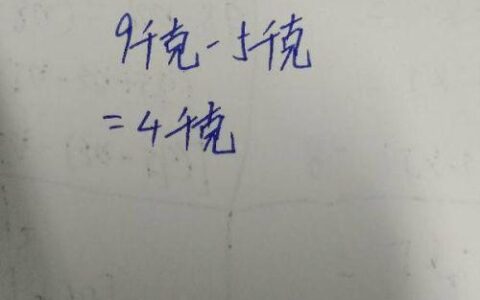 9千克-5千克
=4千克